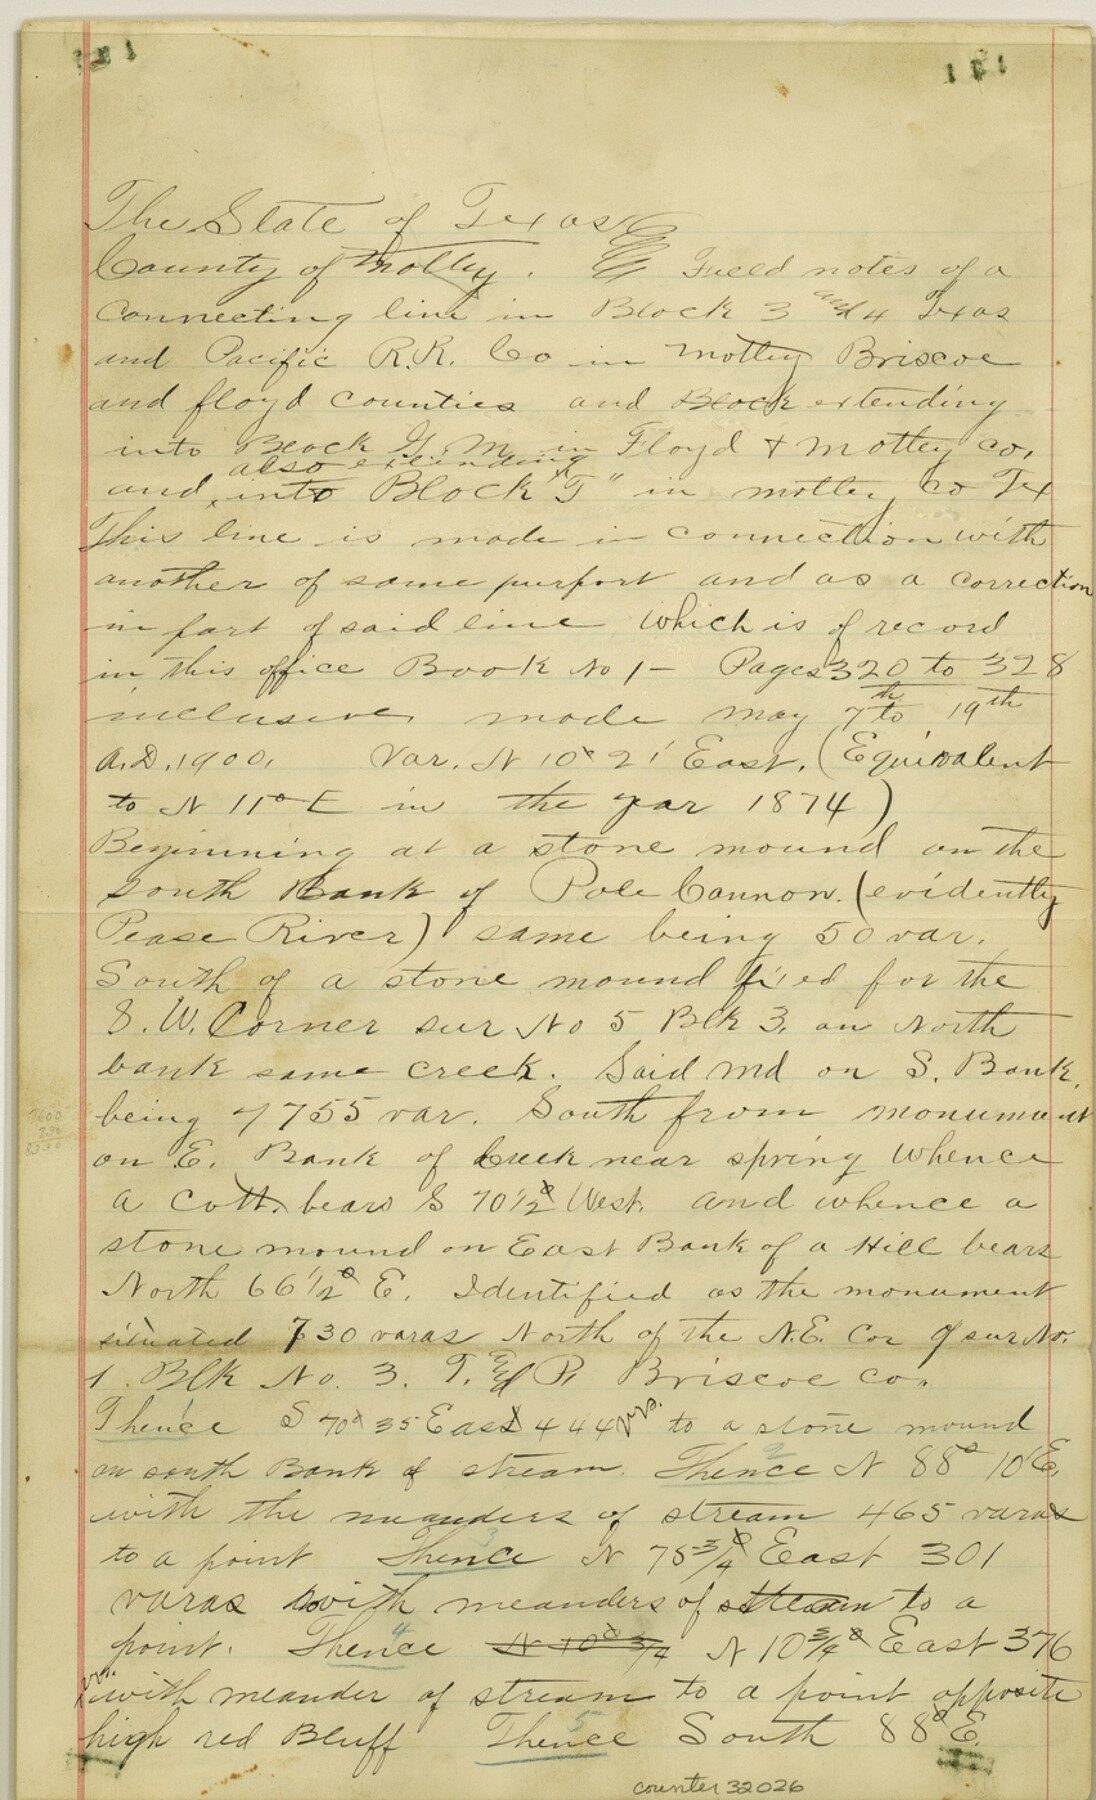 The State of Texas
County of Motley. Fieeld notes of a
connecting line in Block 3 and 4 Texas
and Pacific R.R. Co in Motley Briscoe
and floyd counties and Block extending
into Block G. M. in Floyd & Motley co,
also extending
and, into Block "T" in motley Co Tex
This line is made in connection with
another of same purport and as a correction
in part of said line which is of record
in this office Book No 1 - Pages 320 to 328
inclusive, made may 7th to 19th
A.D. 1900, Var. N 10° 21' East. (Equivalent
to N 11° E in the year 1874)
Beginning at a stone mound on the
south Bank of Pole Cannon. (evidently
Pease River) same being 50 var.
South of a stone mound for the
S. W. Corner sur No 5 Blk 3, on North
bank same creek. Said Md on S. Bank,
being 7755 var. South from monument
on E. Bank of Creek near spring whence
a Cott. bears S 70 1/2° West. and whence a
stone mound on East Bank of a Hill bears
North 66 1/2° E. Identified as the monument
situated 730 varas North of the N.E. Cor of sur No.
1. Blk No. 3. T. & P. Briscoe co.
Thence S 70° 35 East 444 vrs. to a stone mound
on south Bank of stream. Thence N 88° 10' E.
with the meanders of stream 465 varas
to a point Thence N 75 3/4° East 301
varas with meanders of stream to a
point. Thence N 10° 3/4 N 10 3/4° East 376
vrs. with meander of stream to a point opposite
high red Bluff Thence South 88° E.
counter 32026